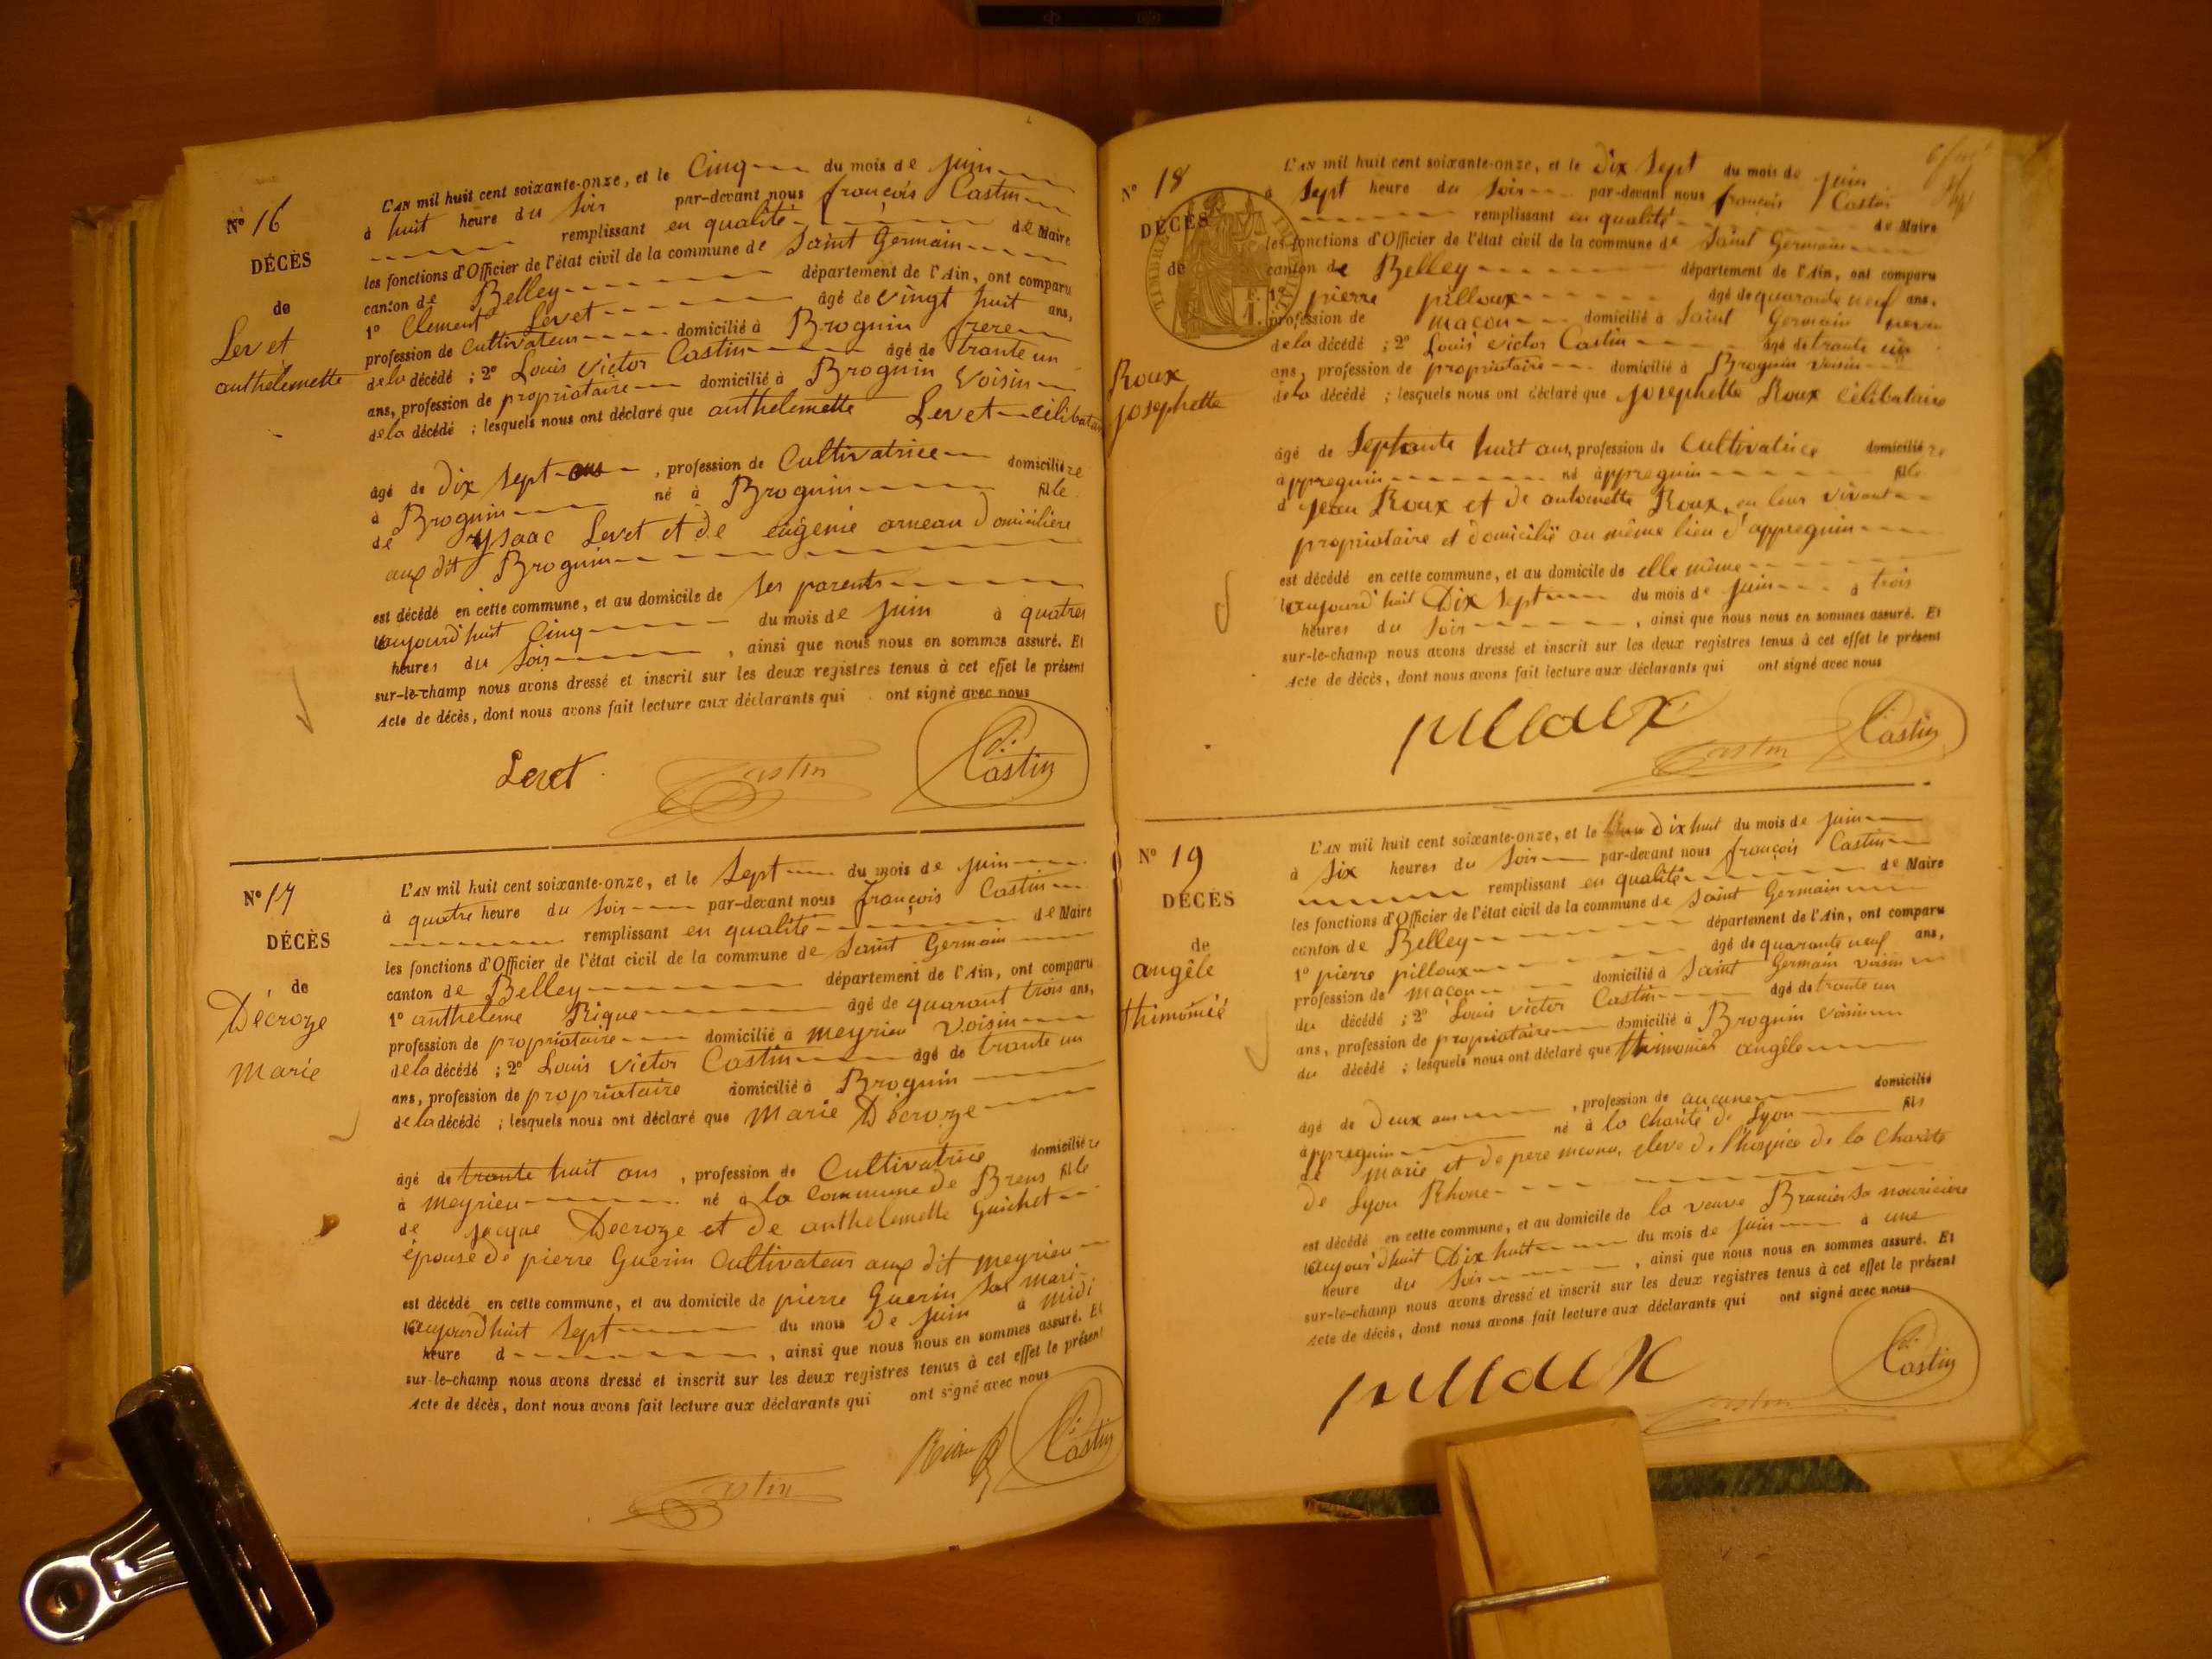 N° 16
DÉCÈS
de
Levet
anthelemette
L'AN mil huit cent soixante-onze, et le Cinq du mois de juin
à huit heure du soir par-devant nous françois Castin
remplissant en qualité de Maire
les fonctions d'Officier de l'état civil de la commune de Saint Germain
canton de Belley département de l'Ain, ont comparu
1° Clement Levet âgé de vingt huit ans,
profession de Cultivateur domicilié à Brognin frere
de la décédé ; 2° Louis Victor Castin âgé de trante un
ans, profession de propriataire domicilié à Brognin Voisin
de la décédé ; lesquels nous ont déclaré que anthelemette Levet celibataire
âgé de dix sept ans , profession de Cultivatrice domiciliére
à Brognin né à Brognin fille
de ysaac Levet et de eugénie arneau domiciliere
aux dit Brognin
est décédé en cette commune, et au domicile de ses parents
aujourd'huit Cinq du mois de juin à quatres
heures du soir , ainsi que nous nous en sommes assuré. Et
sur-le-champ nous avons dressé et inscrit sur les deux registres tenus à cet effet le présent
Acte de décès, dont nous avons fait lecture aux déclarants qui ont signé avec nous
Levet Castin Castin
N° 17
DÉCÈS
de
Décroze
Marie
L'AN mil huit cent soixante-onze, et le Sept du mois de juin
à quatre heure du soir par-devant nous françois Castin
remplissant en qualité de Maire
les fonctions d'Officier de l'état civil de la commune de Saint Germain
canton de Belley département de l'Ain, ont comparu
1° antheleme Rique âgé de quarant trois ans,
profession de propriataire domicilié à meyrieu Voisin
de la décédé ; 2° Louis Victor Castin âgé de trante un
ans, profession de propriataire domicilié à Brognin
de la décédé ; lesquels nous ont déclaré que Marie Décroze
âgé de trante huit ans , profession de Cultivatrice domiciliére
à meyrieu né à la Commune de Brens fille
de jacque Decroze et de anthelemette Guichet
épouse de pierre Guérin Cultivateur aux dit meyrieu
est décédé en cette commune, et au domicile de pierre Guerin son mari
aujourd'huit sept du mois de juin à midi
heure d , ainsi que nous nous en sommes assuré. Et
sur-le-champ nous avons dressé et inscrit sur les deux registres tenus à cet effet le présent
Acte de décès, dont nous avons fait lecture aux déclarants qui ont signé avec nous
Castin Castin
N° 18
DÉCÈS
de
Roux
josephette
L'AN mil huit cent soixante-onze, et le dix sept du mois de juin
à sept heure du soir par-devant nous françois Castin
remplissant en qualité de Maire
les fonctions d'Officier de l'état civil de la commune de Saint Germain
canton de Belley département de l'Ain, ont comparu
1° pierre pilloux âgé de quarante neuf ans,
profession de macon domicilié à Saint Germain neveu
de la décédé ; 2° Louis victor Castin âgé de trante un
ans, profession de propriataire domicilié à Brognin voisin
de la décédé ; lesquels nous ont déclaré que josephette Roux célibataire
âgé de Septante huit ans, profession de Cultivatrice domiciliére
à ppregnin né à ppregnin fille
d jean Roux et de antoinette Roux, en leur vivant
propriataire et domicilié au même lieu d'appregnin
est décédé en cette commune, et au domicile de elle même
aujourd'huit Dix Sept du mois de juin à trois
heures du soir , ainsi que nous nous en sommes assuré. Et
sur-le-champ nous avons dressé et inscrit sur les deux registres tenus à cet effet le présent
Acte de décès, dont nous avons fait lecture aux déclarants qui ont signé avec nous
pilloux Castin Castin
N° 19
DÉCÈS
de
angêle
thimonié
L'AN mil huit cent soixante-onze, et le dix huit du mois de juin
à six heures du soir par-devant nous françois Castin
remplissant en qualité de Maire
les fonctions d'Officier de l'état civil de la commune de Saint Germain
canton de Belley département de l'Ain, ont comparu
1° pierre pilloux âgé de quarante neuf ans,
profession de macon domicilié à Saint Germain voisin
du décédé ; 2° Louis victor Castin âgé de trante un
ans, profession de propriataire domicilié à Brognin voisin
du décédé ; lesquels nous ont déclaré que thimonier angêle
âgé de deux ans , profession de aucune domicilié
à ppregnin né à la charité de Lyon fils
de marie et de pere inconu, eleve de l'hospice de la Charité
de Lyon Rhone
est décédé en cette commune, et au domicile de la veuve Brunier sa nouriciere
aujour'dhuit Dix huit du mois de juin à une
heure du soir , ainsi que nous nous en sommes assuré. Et
sur-le-champ nous avons dressé et inscrit sur les deux registres tenus à cet effet le présent
Acte de décès, dont nous avons fait lecture aux déclarants qui ont signé avec nous
pilloux Castin Castin